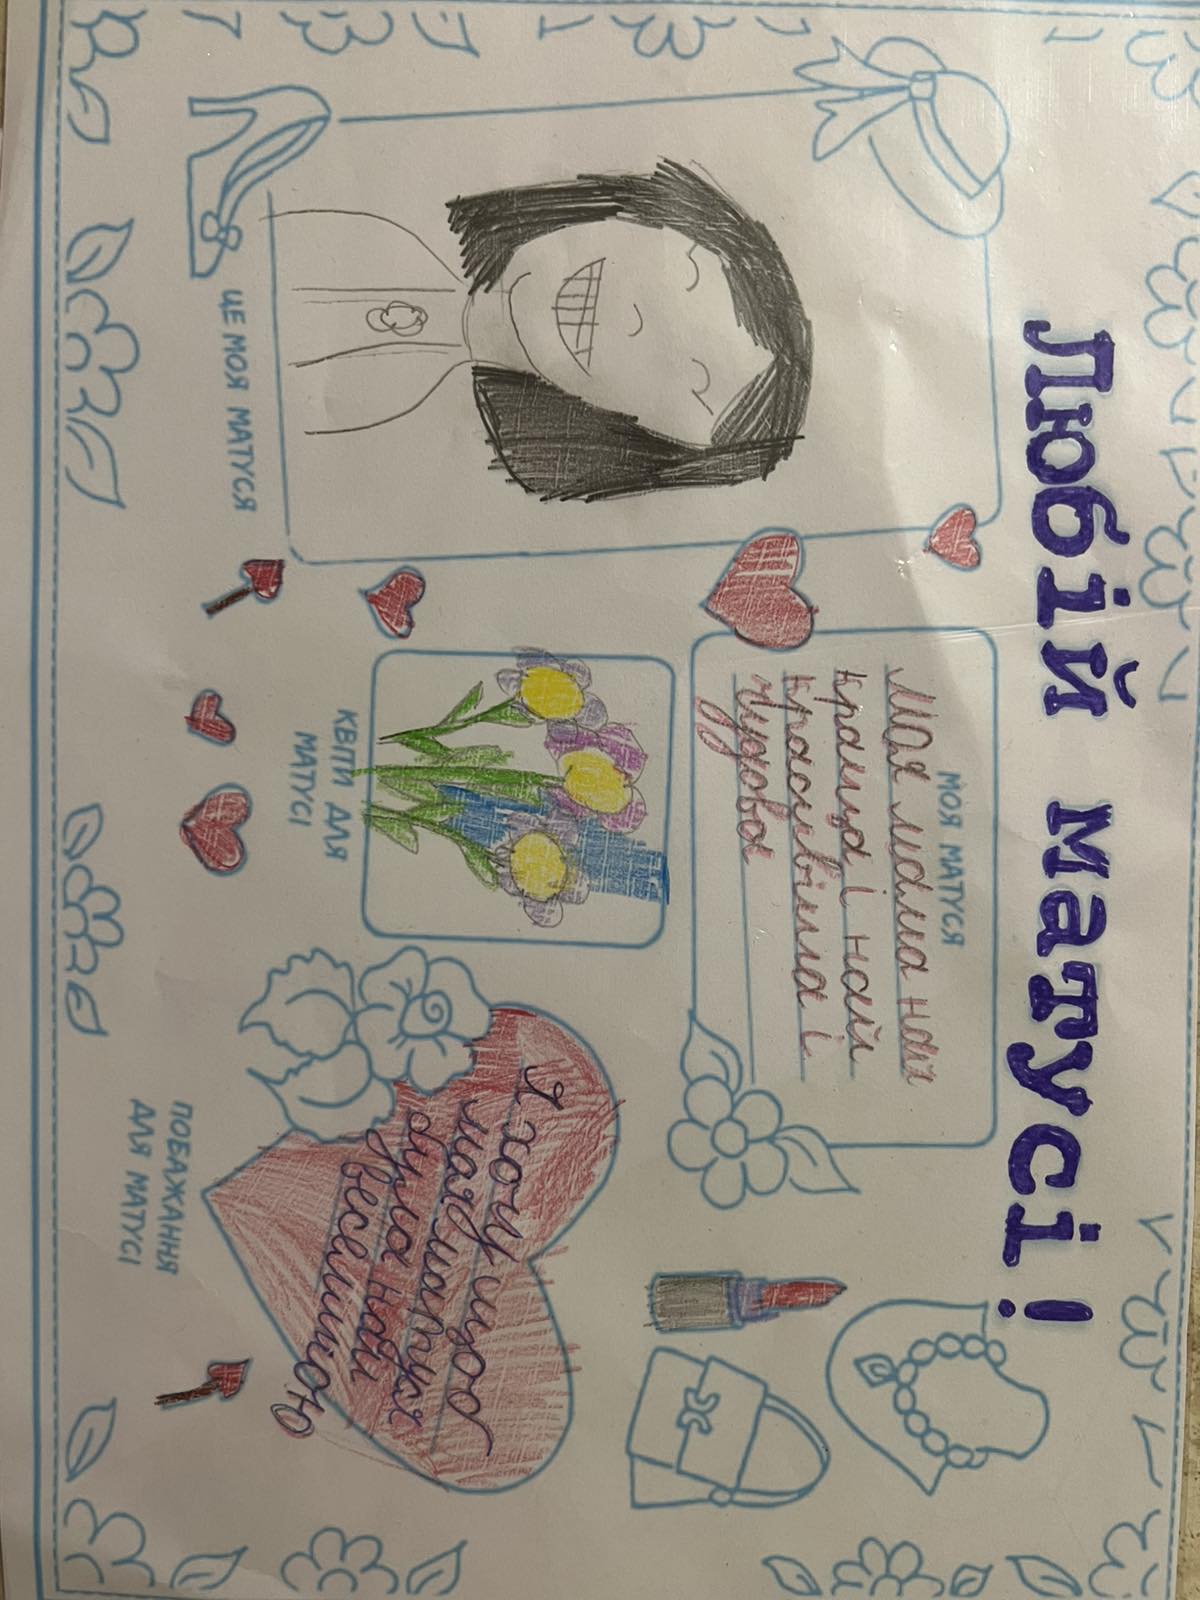 Любій матусі!
ЦЕ МОЯ МАТУСЯ
МОЯ МАТУСЯ
Моя мама най
краща і най
красивіша і
чудова
КВІТИ ДЛЯ
МАТУСІ
Я хочу щоб
моя матуся
була най
веселішою
ПОБАЖАННЯ
ДЛЯ МАТУСІ